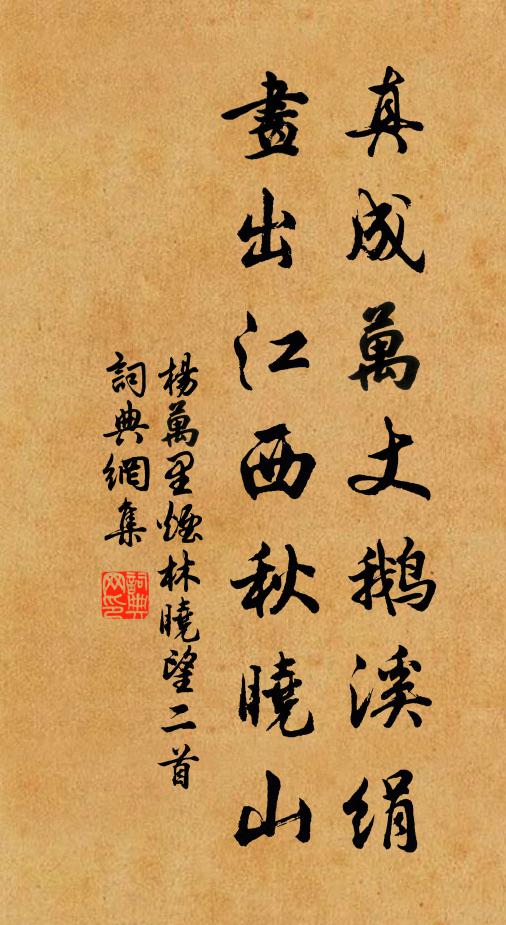 真成萬丈鵝溪絹
畫出江西秋曉山
楊萬里煙林曉望二首
詞典網集
詞典网印